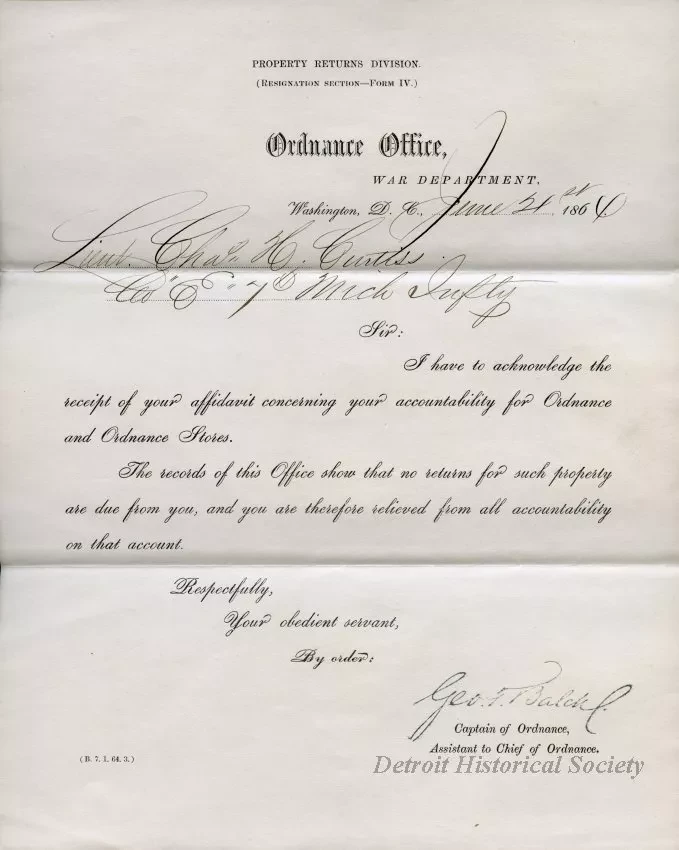 PROPERTY RETURNS DIVISION.
(RESIGNATION SECTION—FORM IV.)
Ordnance Office,
WAR DEPARTMENT,
Washington, D. C., June 21st 1864
Lieut. Chas H. Curtiss.
Co "E" 7th Mich Infty
Sir:
I have to acknowledge the
receipt of your affidavit concerning your accountability for Ordnance
and Ordnance Stores.
The records of this Office show that no returns for such property
are due from you, and you are therefore relieved from all accountability
on that account.
Respectfully,
Your obedient servant,
By order:
Geo. T. Balch
Captain of Ordnance,
Assistant to Chief of Ordnance.
(B. 7. 1. 64. 3.)
Detroit Historical Society